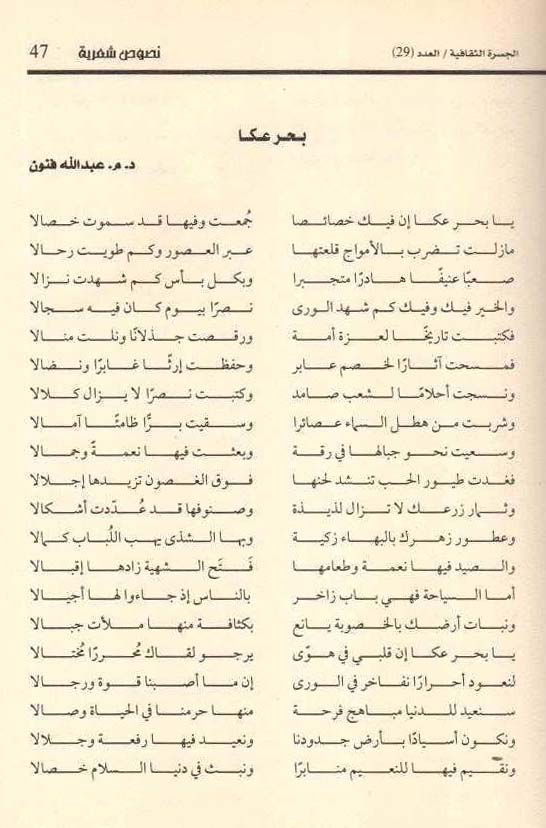 الجسرة الثقافية / العدد (29) نصوص شعرية 47
بحر عكا
د. م. عبدالله فنون
يا بحر عكا إن فيك خصائصا جُمعت وفيها قد سموت خصالا
مازلت تضرب بالأمواج قلعتها عبر العصور وكم طويت رحالا
صعبًا عنيفًا هادرًا متجبرا وبكل بأس كم شهدت نزالا
والخير فيك وفيك كم شهد الورى نصرًا بيوم كان فيه سجالا
فكتبت تاريخًا لعزة أمة ورقصت جذلانًا ونلت منالا
فمسحت آثارًا لخصم عابر وحفظت إرثًا غابرًا ونضالا
ونسجت أحلامًا لشعب صامد وكتبت نصرًا لا يزال كلالا
وشربت من هطل السماء عصائرا وسقيت برًّا ظامئًا آمالا
وسعيت نحو جبالها في رقة وبعثت فيها نعمةً وجمالا
فغدت طيور الحب تنشد لحنها فوق الغصون تزيدها إجلالا
وثمار زرعك لا تزال لذيذة وصنوفها قد عُدّدت أشكالا
وعطور زهرك بالبهاء زكية وبها الشذى يهب اللُباب كمالا
والصيد فيها نعمة وطعامها فَتَح الشهية زادها إقبالا
أما السياحة فهي باب زاخر بالناس إذ جاءوا لها أجيالا
ونبات أرضك بالخصوبة يانع بكثافة منها ملأت جبالا
يا بحر عكا إن قلبي في هوًى يرجو لقاك مُحررًا مُختالا
لنعود أحرارًا نفاخر في الورى إن ما أصبنا قوة ورجالا
سنعيد للدنيا مباهج فرحة منها حرمنا في الحياة وصالا
ونكون أسيادًا بأرض جدودنا ونعيد فيها رفعة وجلالا
ونقيم فيها للنعيم منابرًا ونبث في دنيا السلام خصالا